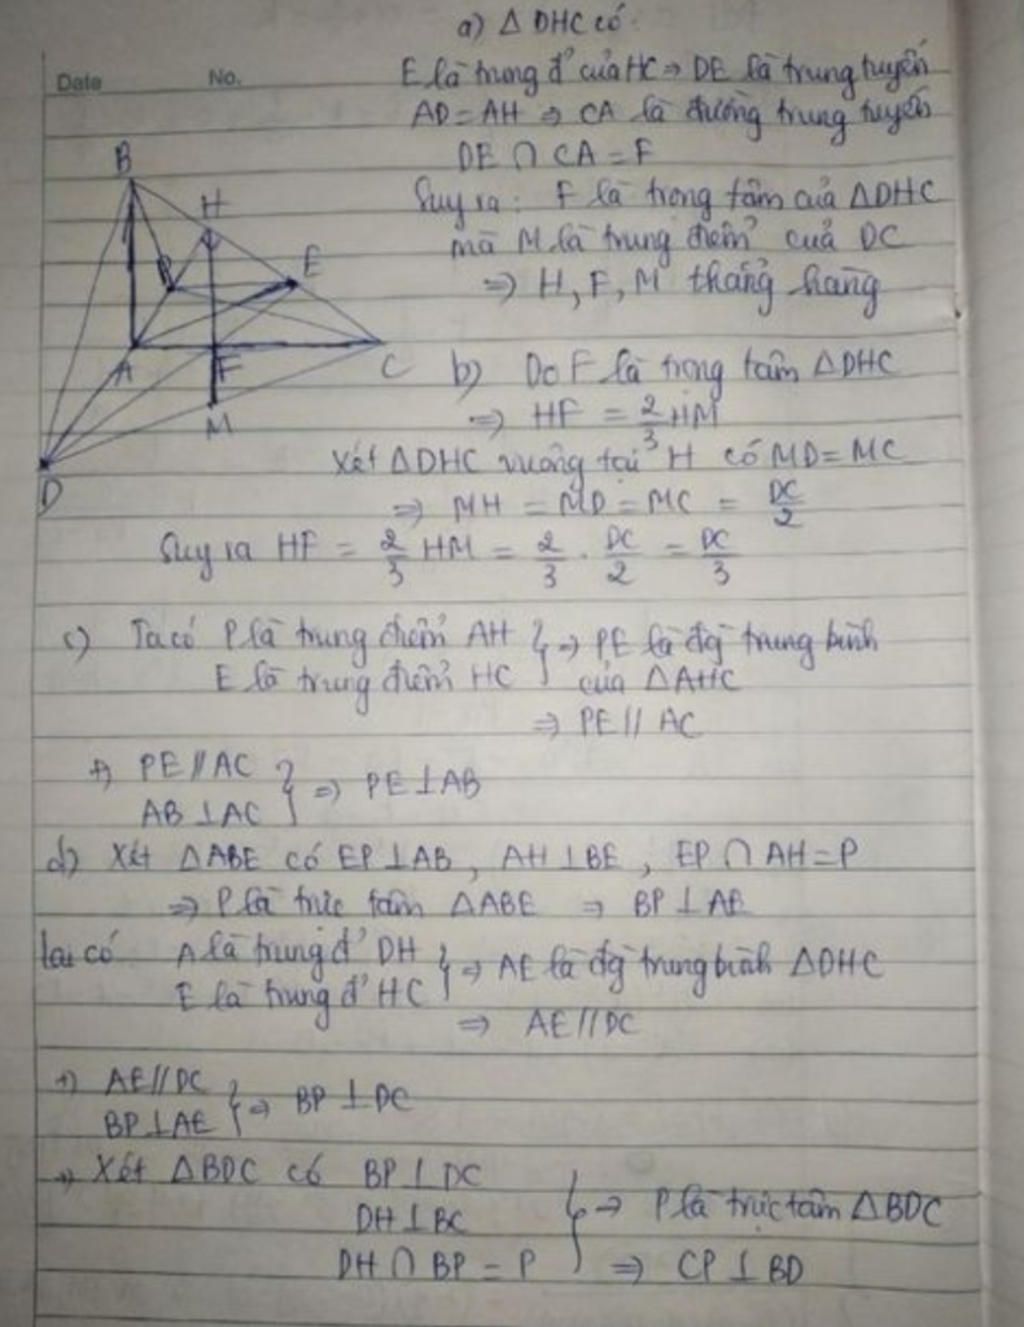 a) △ DHC có:
Date No.
E là trung đ' của HC ⇒ DE là trung tuyến
AD = AH ⇒ CA là đường trung tuyến
DE ∩ CA = F
Suy ra: F là trọng tâm của △DHC
mà M là trung điểm của DC
⇒ H, F, M thẳng hàng
B
H
E
P
A
F
C
M
D
b) Do F là trọng tâm △DHC
⇒ HF = 2/3 HM
Xét △DHC vuông tại H có MD = MC
⇒ MH = MD = MC = DC/2
Suy ra HF = 2/3 HM = 2/3 . DC/2 = DC/3
c) Ta có P là trung điểm AH } ⇒ PE là đg trung bình
E là trung điểm HC của △AHC
⇒ PE // AC
+) PE // AC } ⇒ PE ⊥ AB
AB ⊥ AC
d) Xét △ABE có EP ⊥ AB, AH ⊥ BE, EP ∩ AH = P
⇒ P là trực tâm △ABE ⇒ BP ⊥ AE
lại có A là trung đ' DH } ⇒ AE là đg trung bình △DHC
E là trung đ' HC
⇒ AE // DC
+) AE // DC } ⇒ BP ⊥ DC
BP ⊥ AE
+) Xét △BDC có BP ⊥ DC
DH ⊥ BC } ⇒ P là trực tâm △BDC
DH ∩ BP = P ⇒ CP ⊥ BD